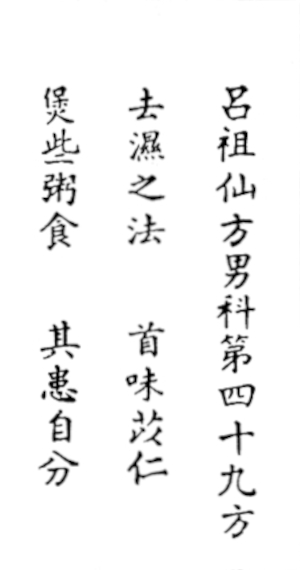 呂祖仙方男科第四十九方
去濕之法　首味苡仁
煲些粥食　其患自分